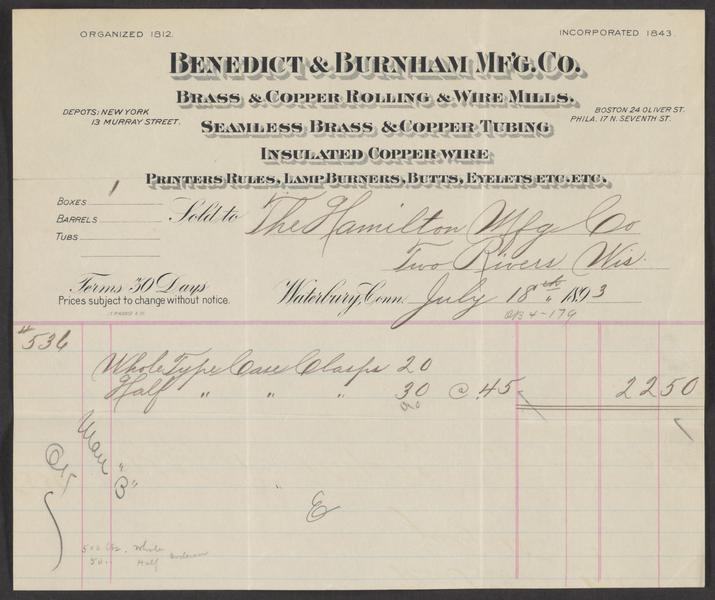 ORGANIZED 1812. INCORPORATED 1843.
BENEDICT & BURNHAM M'F'G. CO.
BRASS & COPPER ROLLING & WIRE MILLS.
DEPOTS: NEW YORK
13 MURRAY STREET.
BOSTON 24 OLIVER ST.
PHILA. 17 N. SEVENTH ST.
SEAMLESS BRASS & COPPER TUBING
INSULATED COPPER WIRE
PRINTERS RULES, LAMP BURNERS, BUTTS, EYELETS ETC. ETC.
BOXES 1
BARRELS
TUBS
Sold to The Hamilton Mfg Co
Two Rivers Wis.
Terms 30 Days
Prices subject to change without notice.
Waterbury, Conn. July 18th 1893
#536
Whole Type Case Clasps 20
Half " " " 30 @ .45 22 50
"B"
E
Whole
Half